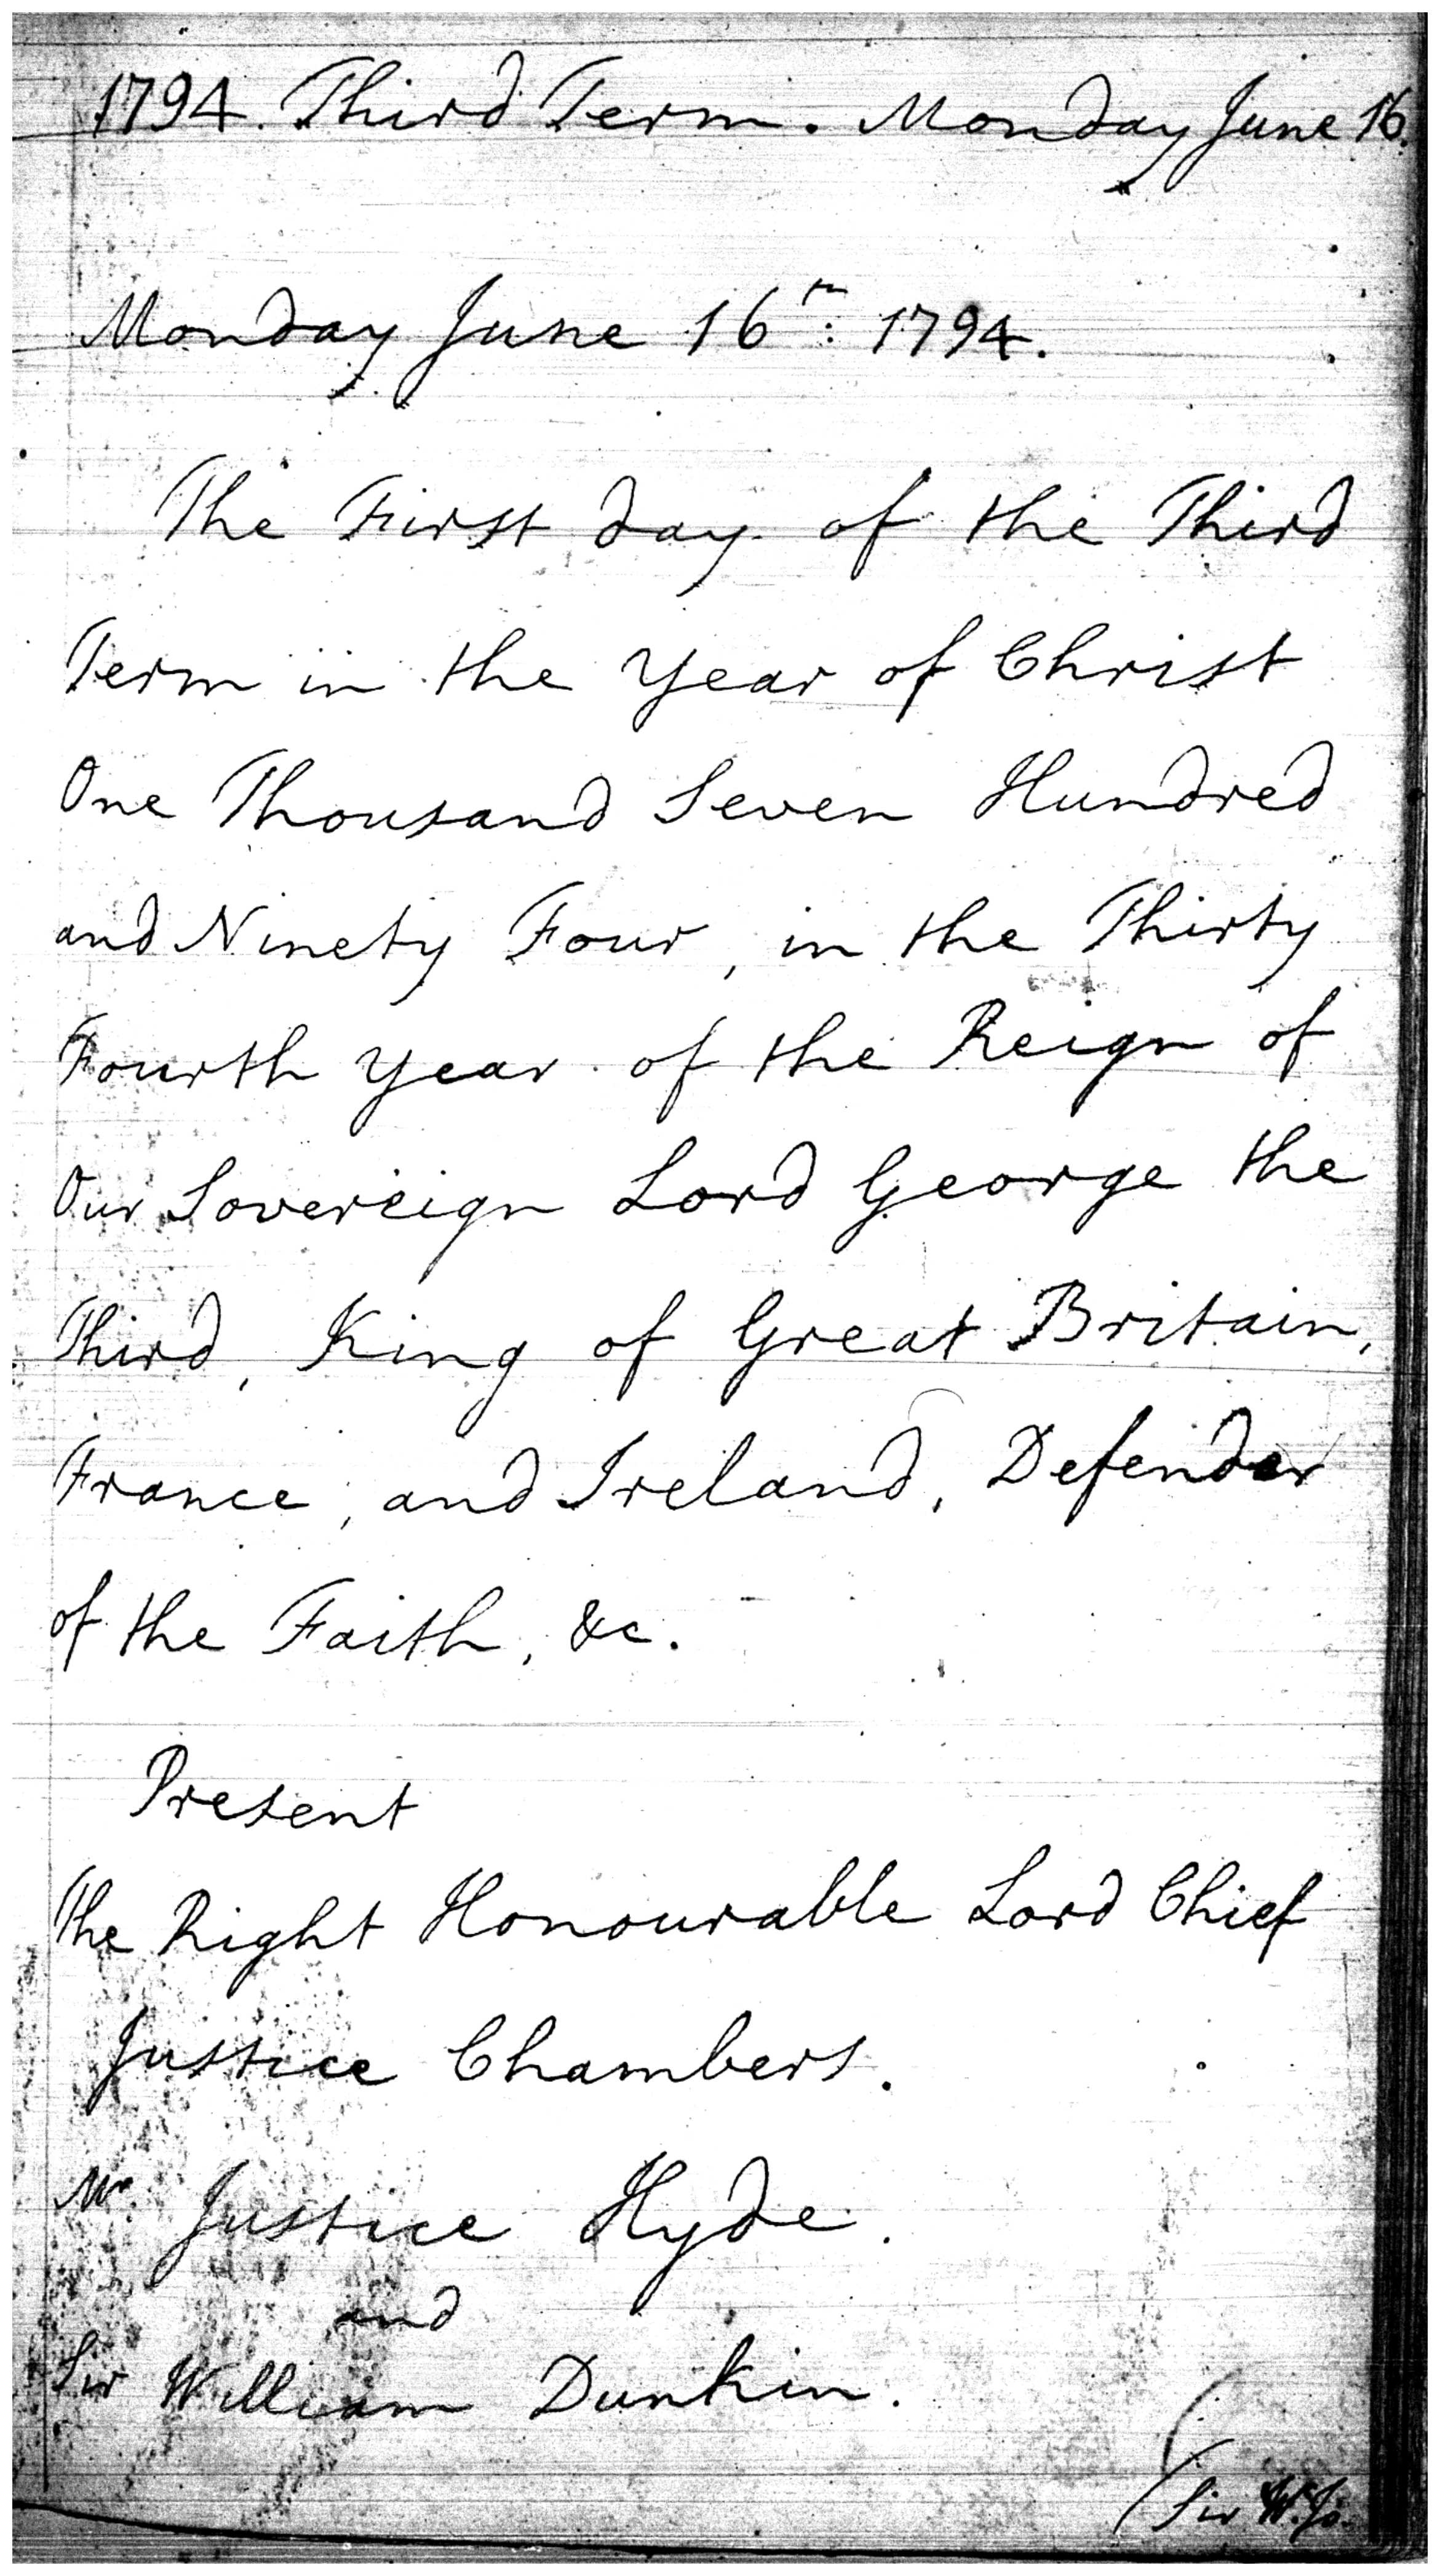 1794. Third Term. Monday June 16.
Monday June 16th: 1794.
The First day of the Third
Term in the Year of Christ
One Thousand Seven Hundred
and Ninety Four, in the Thirty
Fourth Year of the Reign of
Our Sovereign Lord George the
Third, King of Great Britain,
France, and Ireland, Defender
of the Faith, &c.
Present
The Right Honourable Lord Chief
Justice Chambers.
Mr. Justice Hyde.
and
Sir William Dunkin.
(Sir W. Jo.